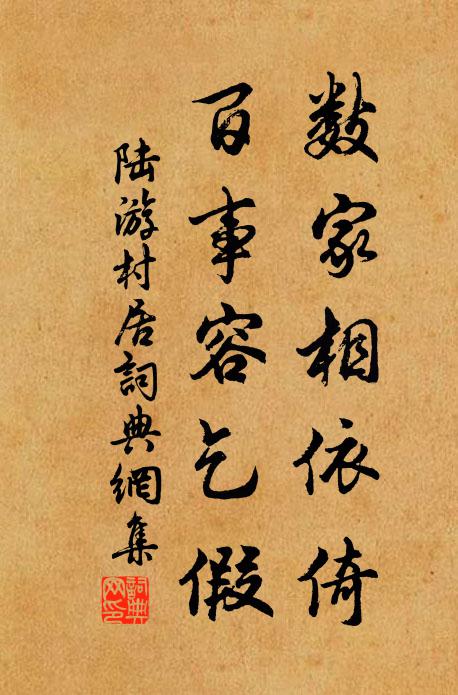 数家相依倚
百事容乞假
陆游村居詞典網集
詞典网印